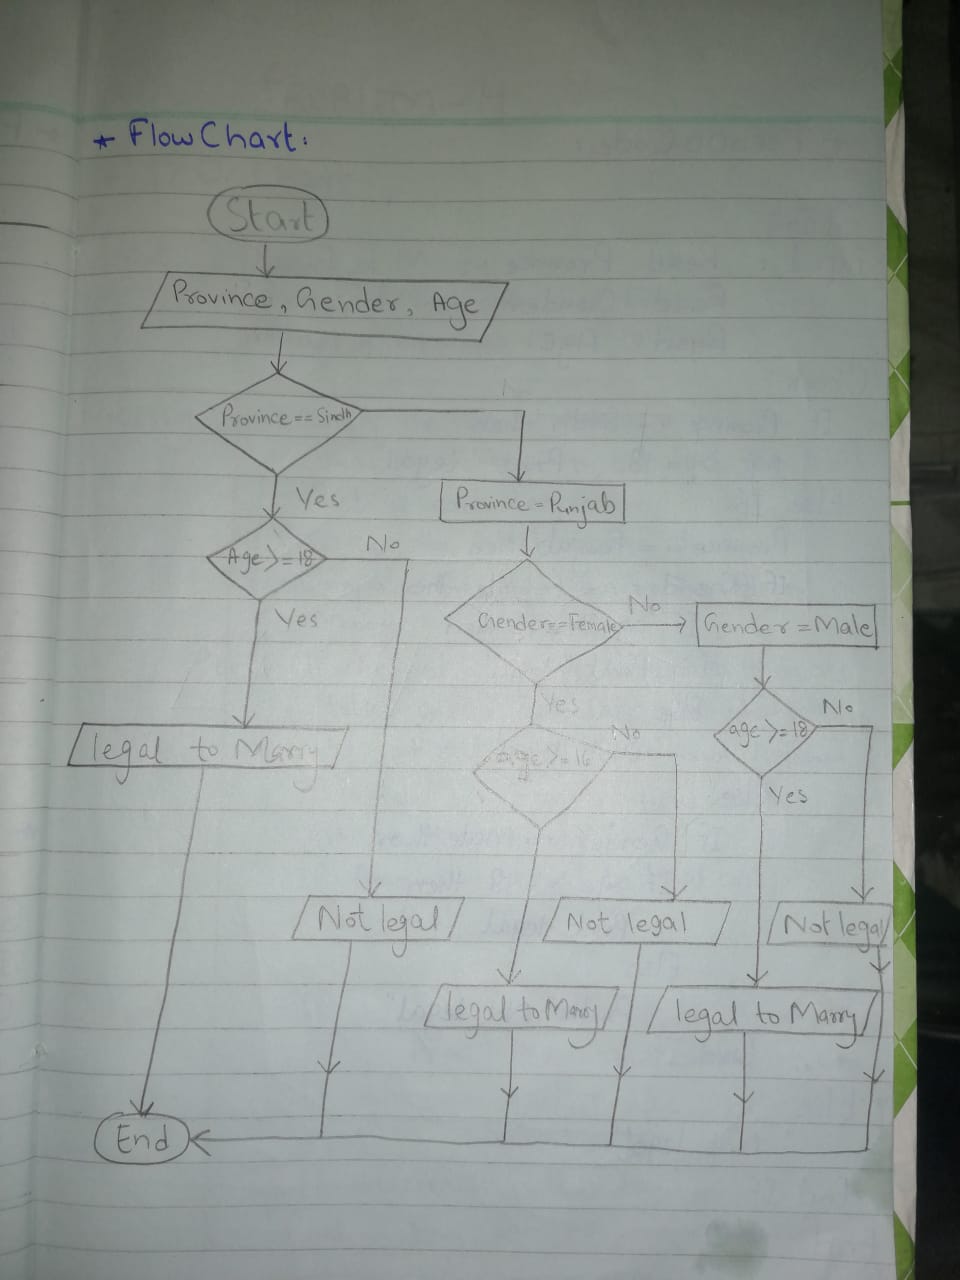 * FlowChart:
Start
Province, Gender, Age
Province == Sindh
Yes
Province = Punjab
Age >= 18
No
Yes
Gender == Female
No
Gender = Male
Yes
age >= 16
No
age >= 18
No
Yes
legal to Marry
Not legal
Not legal
Not legal
legal to Marry
legal to Marry
End